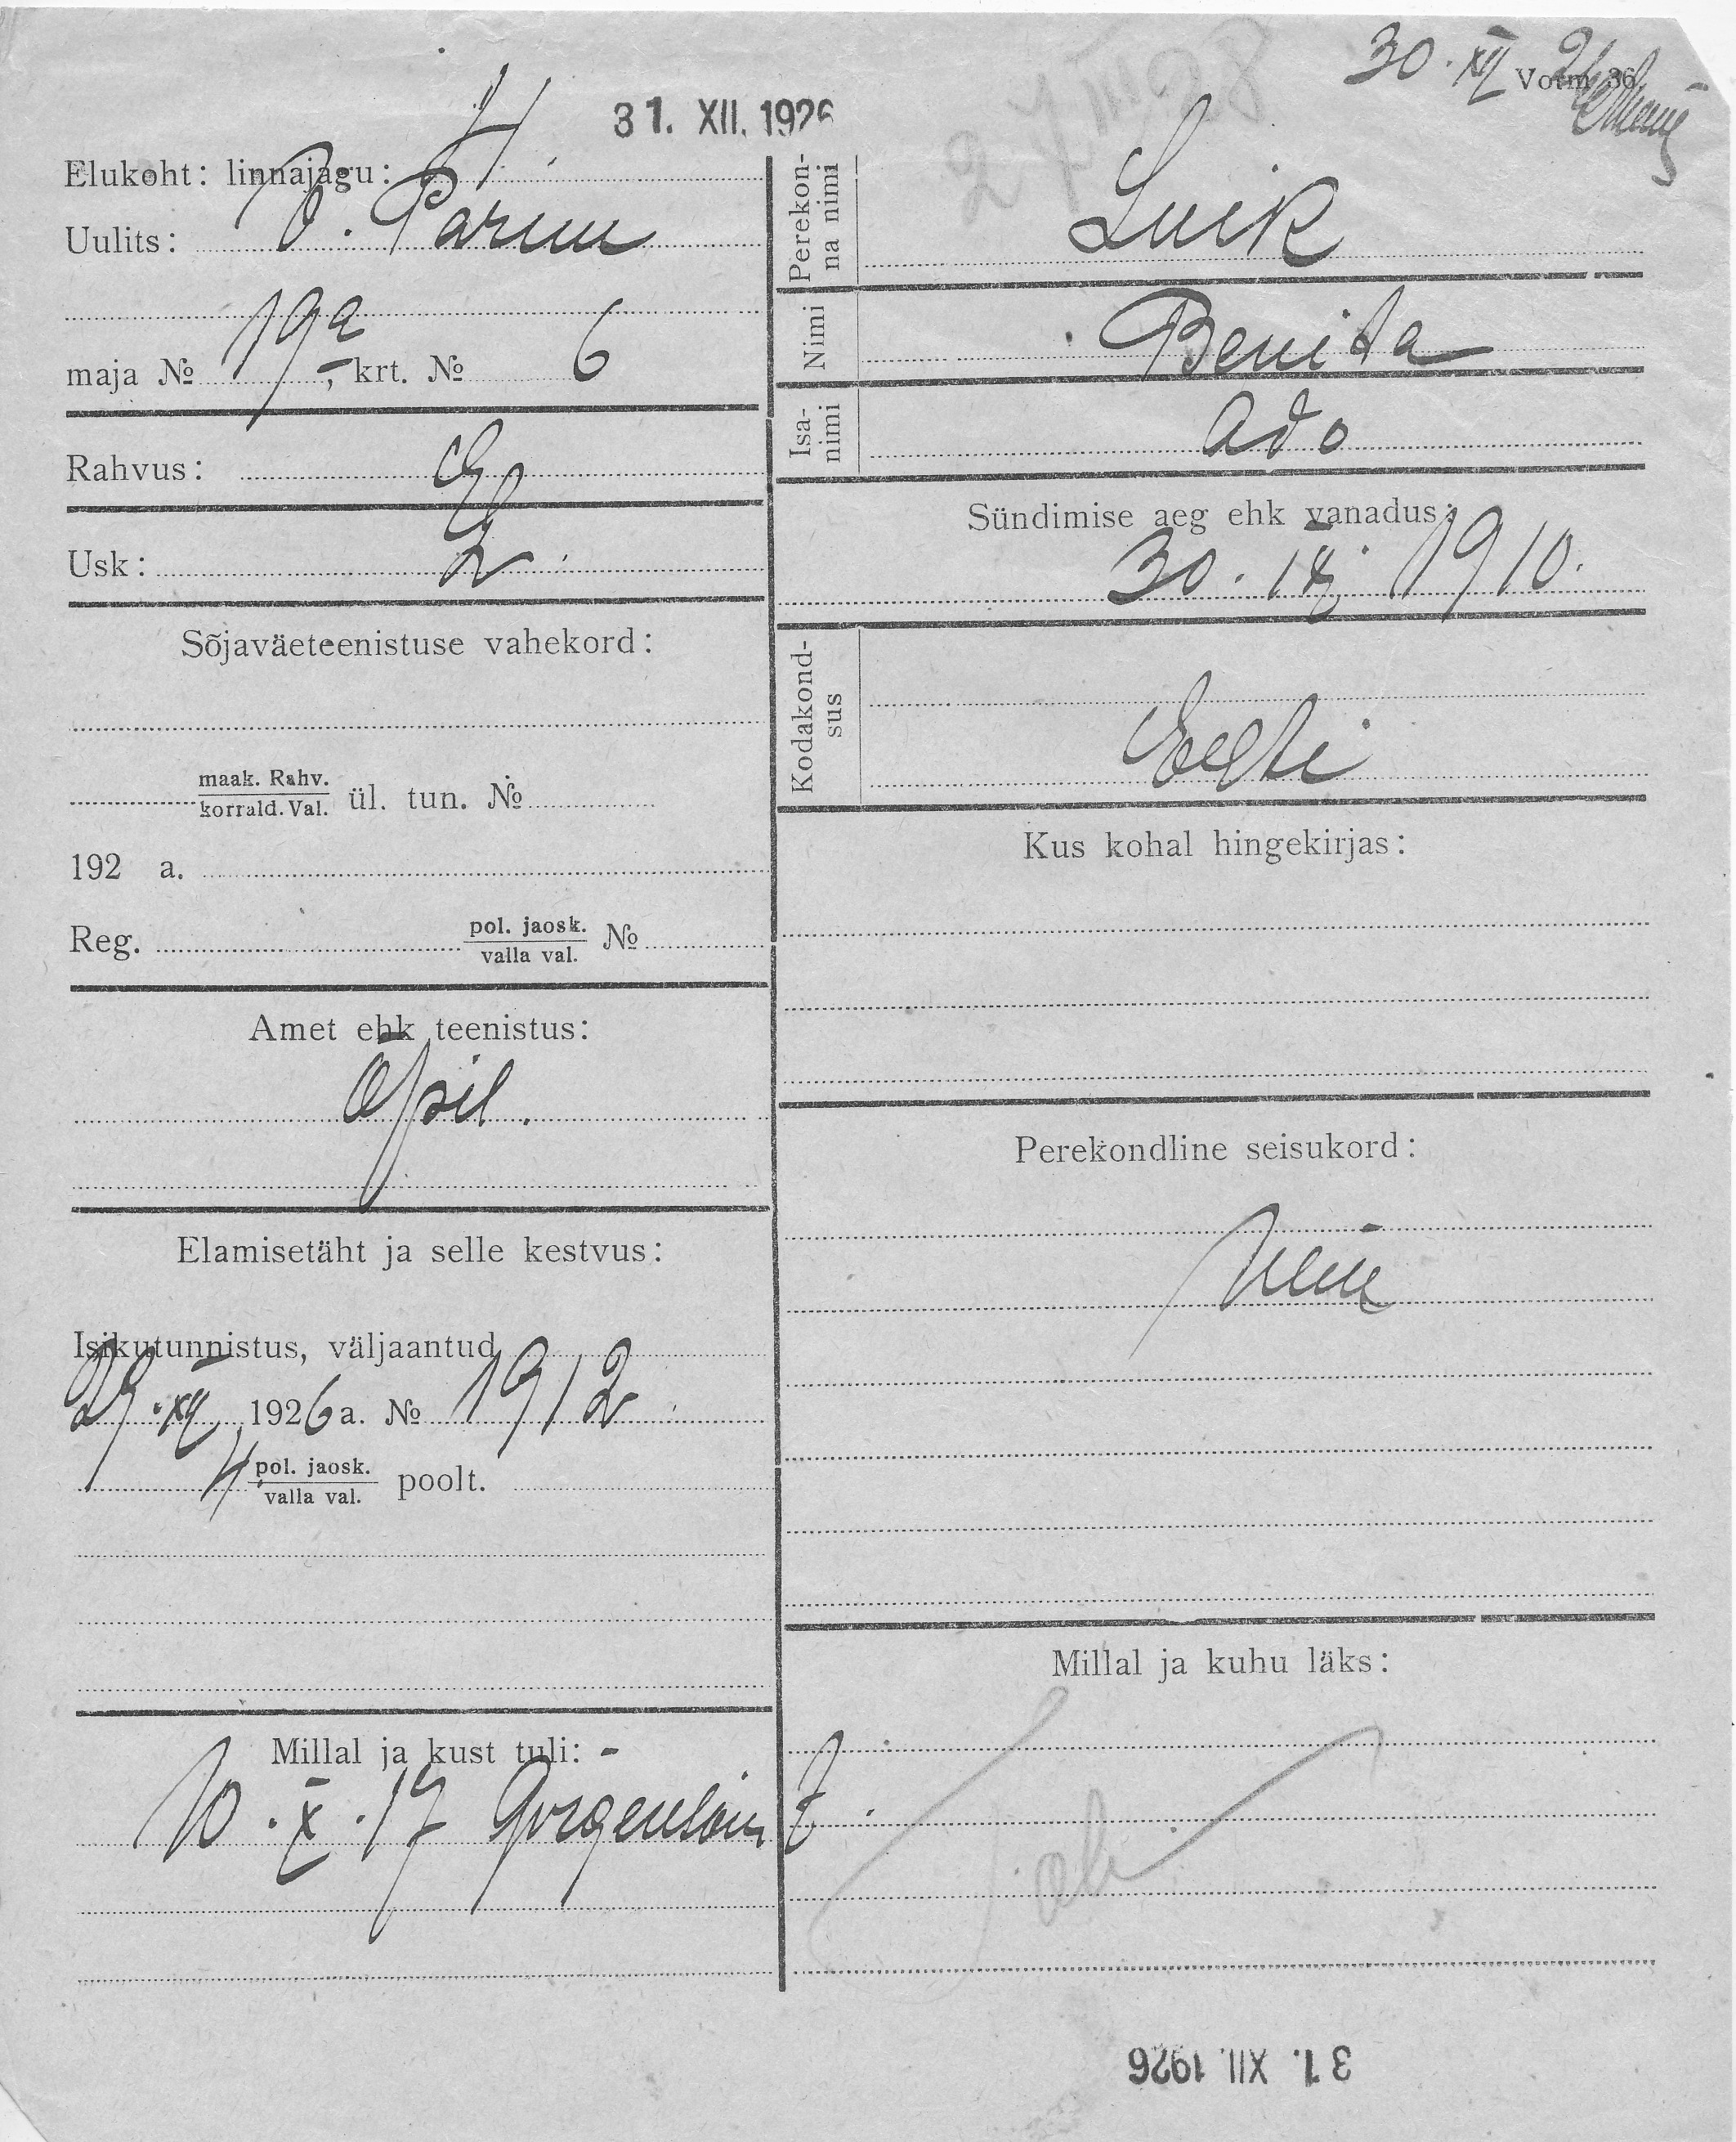 30. XII 26
Vorm 36
31. XII. 1926
Elukoht: linnajagu: 4
Uulits: V. Pärnu
maja № 19a, krt. № 6
Rahvus: E
Usk: L.
Sõjaväeteenistuse vahekord:
maak. Rahv.
korrald. Val. ül. tun. №
192 a.
Reg. pol. jaosk.
valla val. №
Amet ehk teenistus:
Õpil.
Elamisetäht ja selle kestvus:
Isikutunnistus, väljaantud
29. XII 1926 a. № 1912
4 pol. jaosk.
valla val. poolt.
Millal ja kust tuli:
10. X. 17
Perekonna nimi
Luik
Nimi
Benita
Isanimi
Ado
Sündimise aeg ehk vanadus:
30. IX 1910.
Kodakondsus
Eesti
Kus kohal hingekirjas:
Perekondline seisukord:
Millal ja kuhu läks:
31. XII. 1926